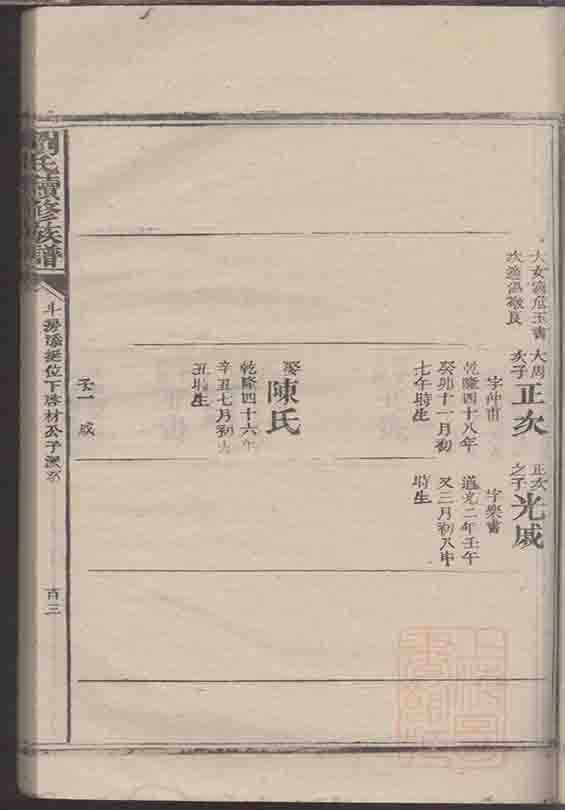 大女適危玉書
次適溫敬良
大周次子
正次
字仲甫
乾隆四十八年
癸卯十一月初
七午時生
娶
陳氏
乾隆四十六年
辛丑七月初
丑時生
子一 咸
正次之子
光咸
字樂書
道光二年壬午
又三月初八申
時生
氏續修族譜
位下 材公子派系
百三